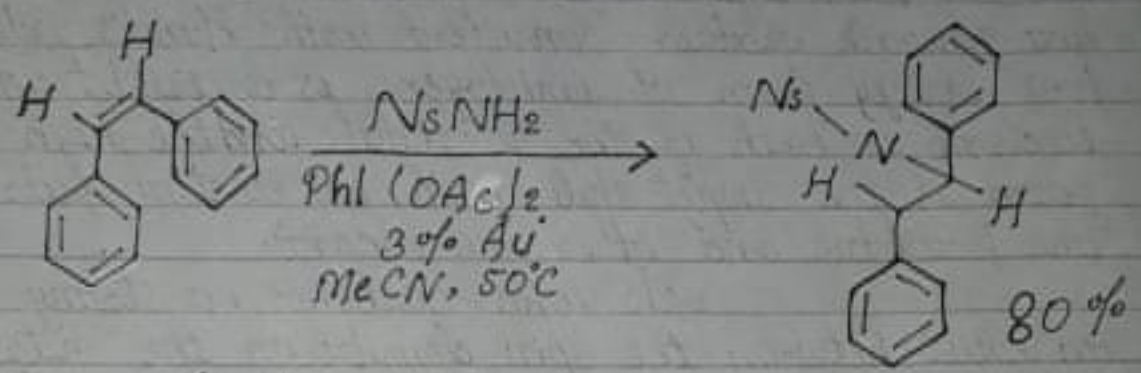 H
H
NsNH2
PhI (OAc)2
3% Au
MeCN, 50°C
Ns
N
H
H
80%